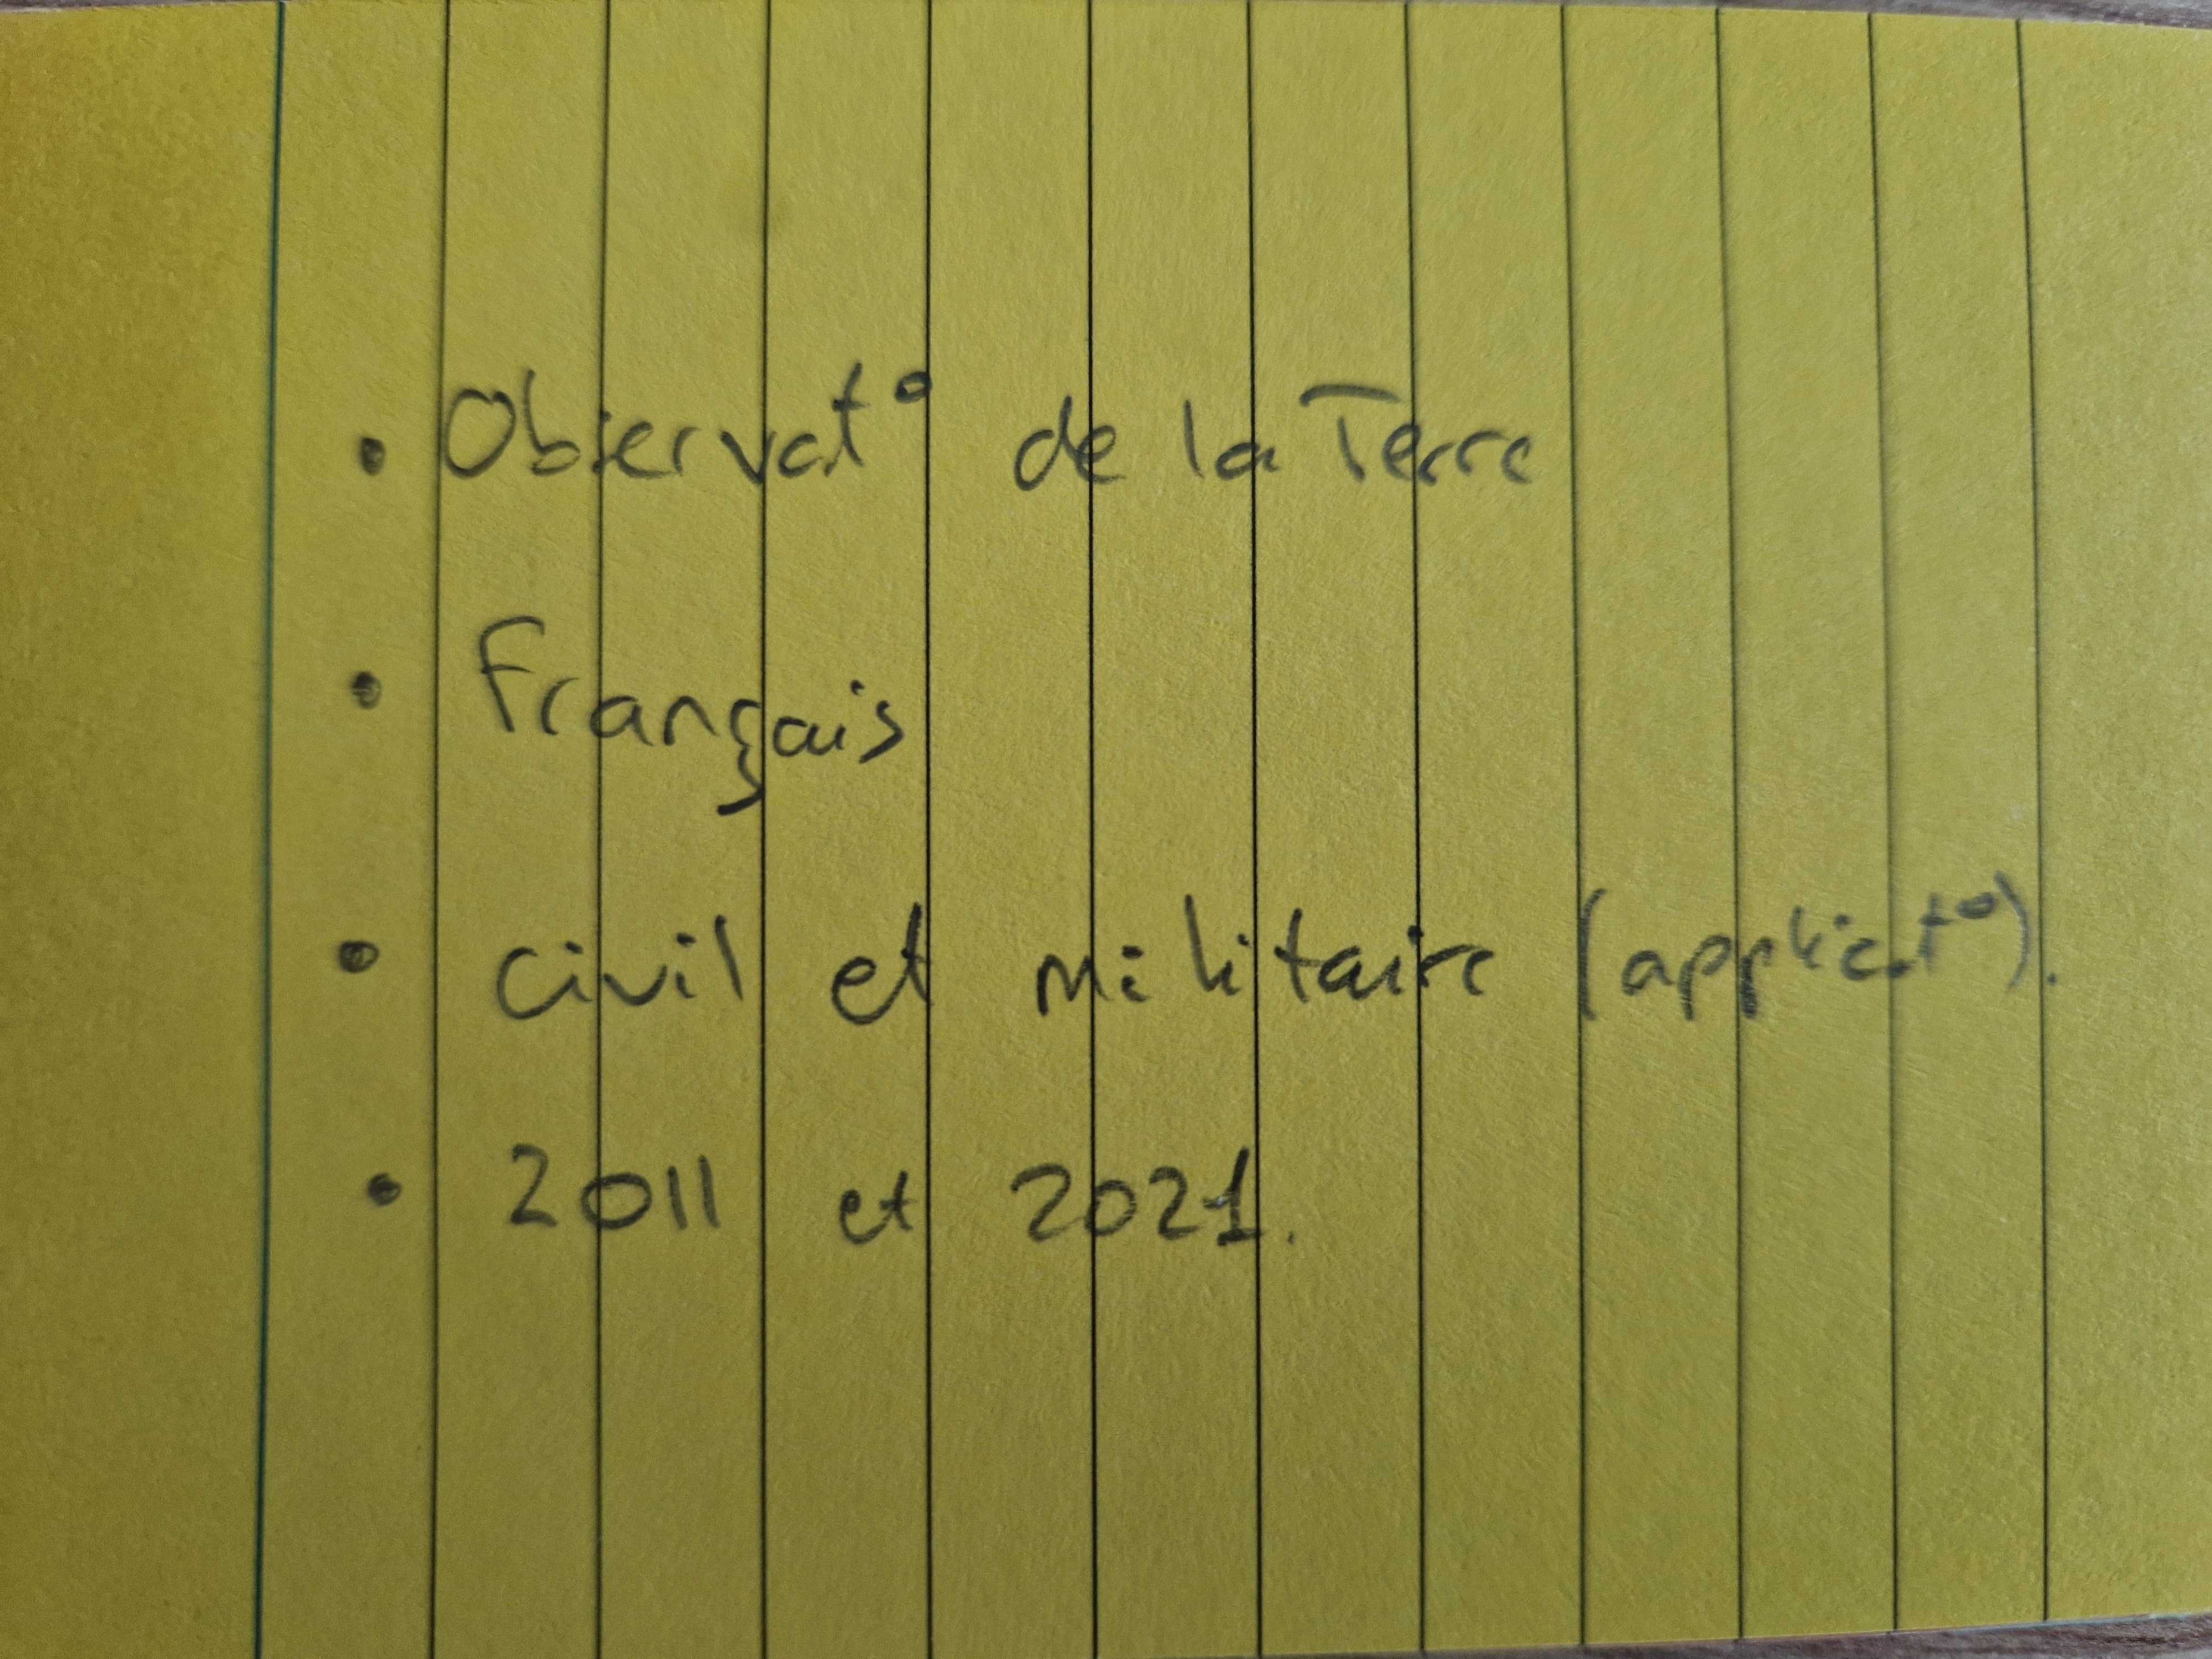 • Observat° de la Terre
• Français
• civil et militaire (applicat°).
• 2011 et 2021.